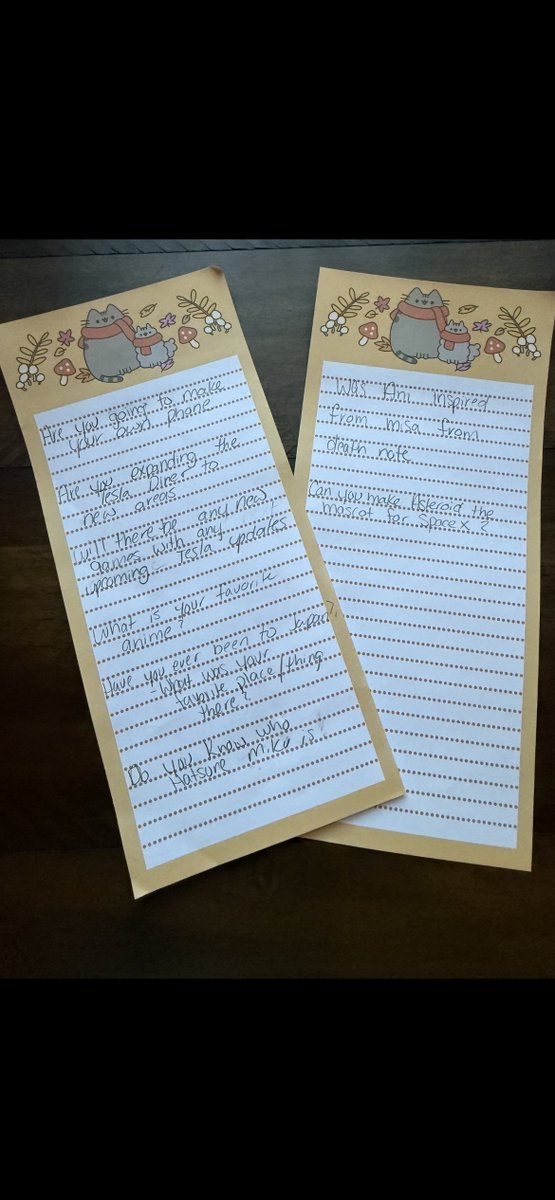 Are you going to make
your own phone
Are you expanding the
Tesla Diner to
new areas
Will there be any new
games with any
upcoming Tesla updates
What is your favorite
anime?
Have you ever been to Japan?
- What was your
favorite place/thing
there?
Do you know who
Hatsune miku is
Was Ani inspired
from misa from
death note
Can you make Asteroid the
mascot for SpaceX?